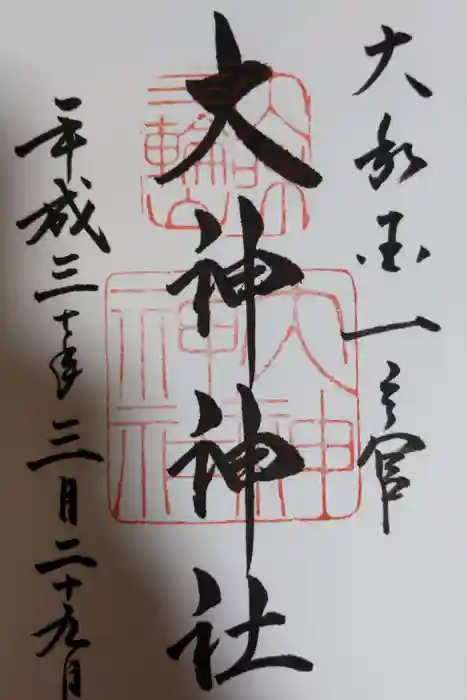 大和国一之宮
大神神社
平成三十年三月二十九日
三輪山
大神
神社